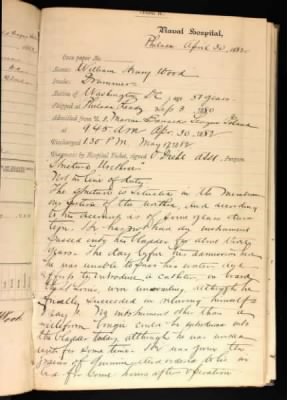 Naval Hospital,
Philada April 30, 1882
Case paper No.
Name: William Henry Wood
Rate: Drummer
Native of Washington DC, age 37 years.
Shipped at Philada Sep 3 1880
Admitted from U.S. Marine Barracks League Island
at 9.45 AM Apr. 30, 1882
Discharged 1.30 P.M. May 1882
Diagnosis by Hospital Ticket, signed Surgeon
Stricture Urethra
Not in line of duty
The stricture is situated in the Membran
ous portion of the urethra, and according
to his account is of some years stand
ing. He has not had an instrument
passed into his bladder for about three
years. The day before his admission here
he was unable to pass his water and
efforts to introduce a catheter on board
the St Louis were unavailing, although he
finally succeeded in relieving himself
No instrument other than a
filiform bougie could be introduced into
the bladder today although he was
for some time. He was given ten
grains of quinine and ordered to be
bed for some hours after operation
Wood